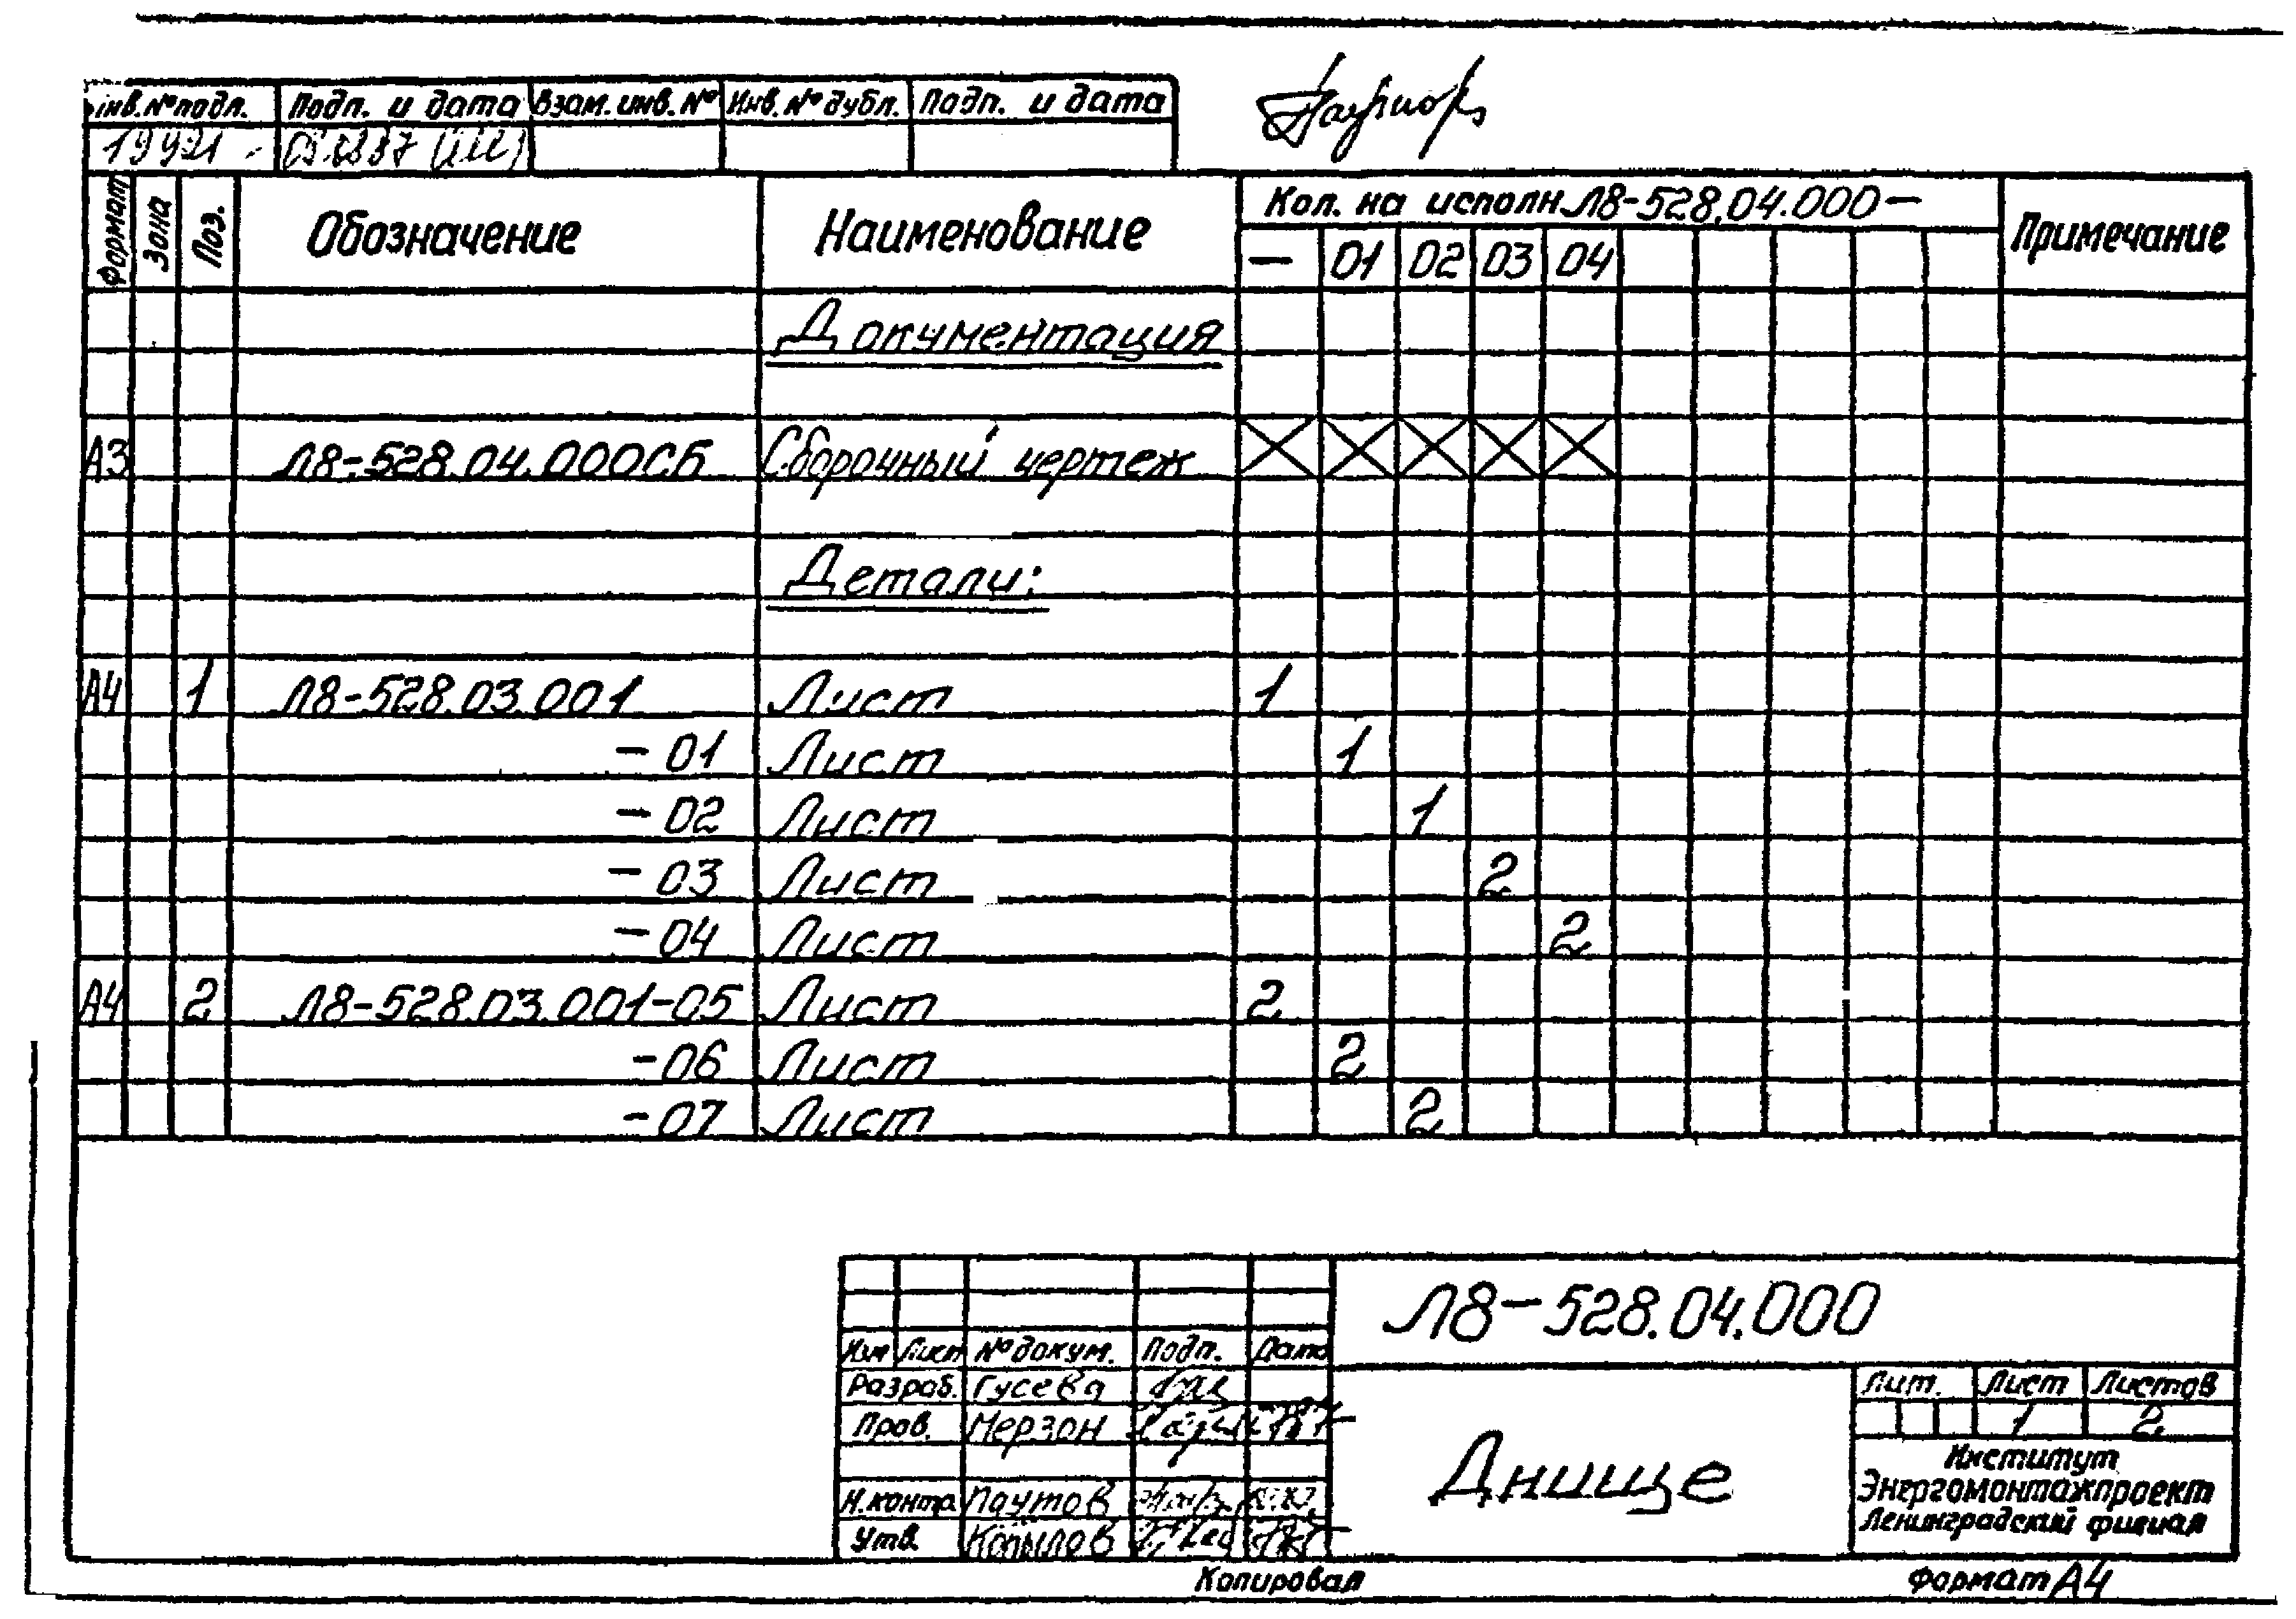 Инв.№ подл. Подп. и дата Взам. инв. № Инв. № дубл. Подп. и дата
19421
Формат Зона Поз. Обозначение Наименование Кол. на исполн. Л8-528.04.000- Примечание
- 01 02 03 04
Документация
А3 Л8-528.04.000СБ Сборочный чертеж
Детали:
А4 1 Л8-528.03.001 Лист 1
-01 Лист 1
-02 Лист 1
-03 Лист 2
-04 Лист 2
А4 2 Л8-528.03.001-05 Лист 2
-06 Лист 2
-07 Лист 2
Л8-528.04.000
Изм Лист № докум. Подп. Дата
Разраб. Гусева
Пров. Мерзон
Н.контр. Паутов
Утв. Копылов
Днище
Лит. Лист Листов
1 2
Институт
Энергомонтажпроект
Ленинградский филиал
Копировал Формат А4